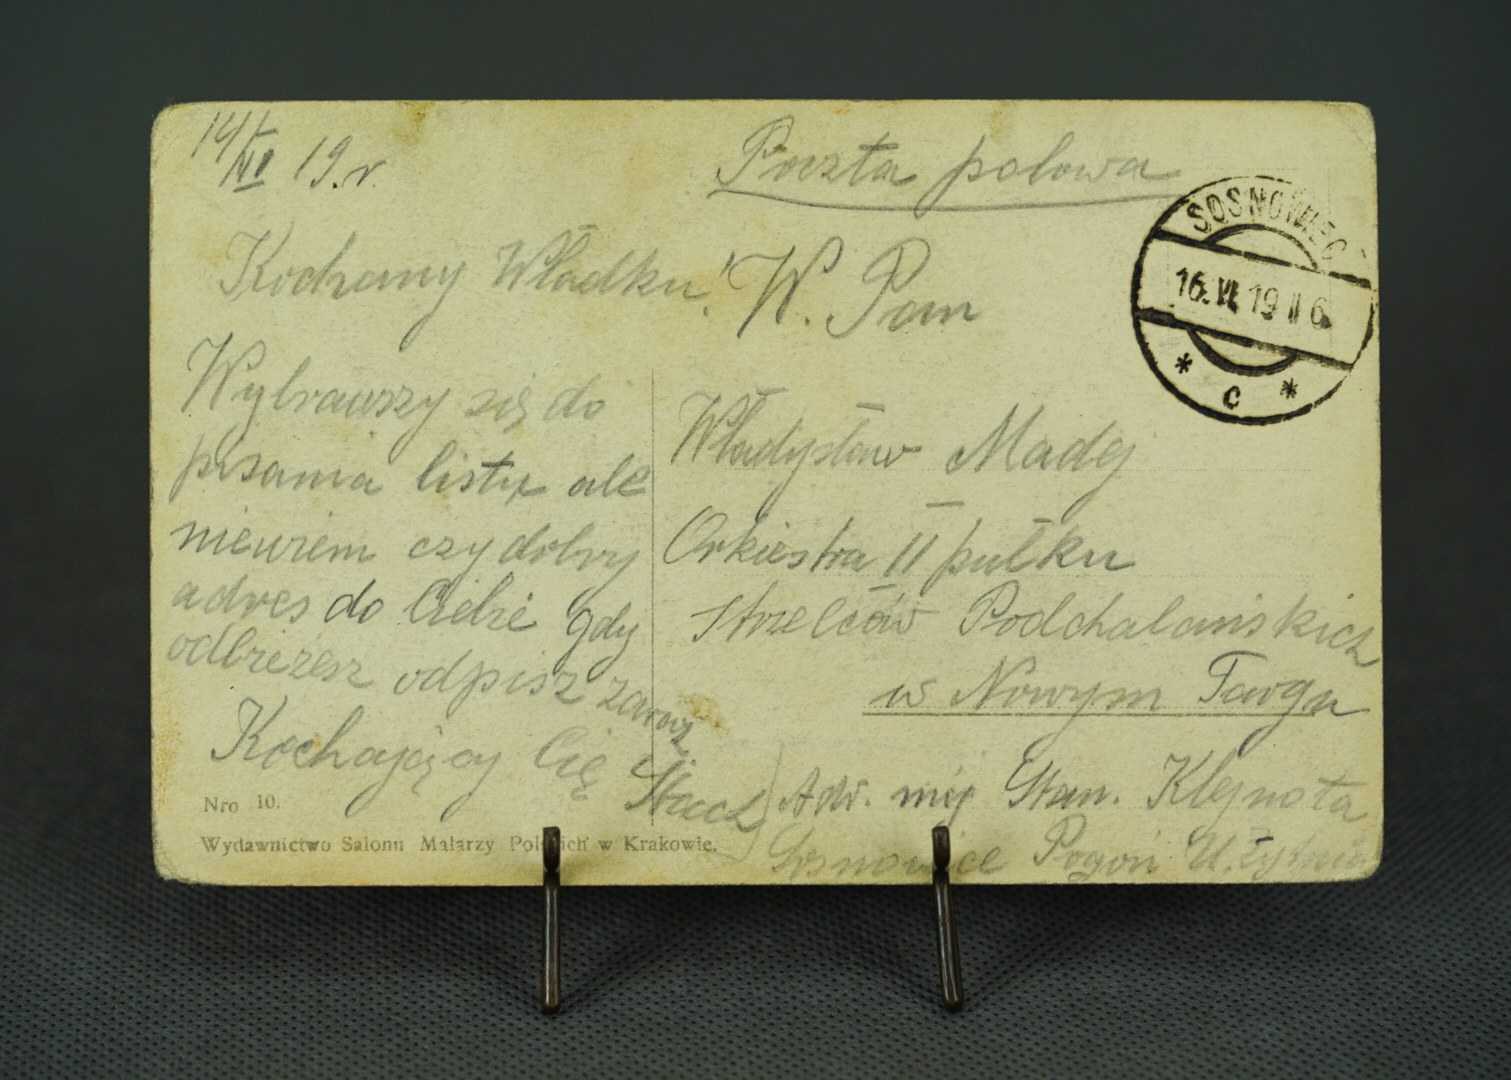 14/VI 19.r.
Poczta polowa
SOSNOWIEC
16.VI.19 II 6
* c *
Kochany Władku!
W. Pan
Wybrawszy się do
pisania listu ale
niewiem czy dobry
adres do Ciebie gdy
odbieżesz odpisz zaraz
Kochający Cię
Stach
Władysław Madej
Orkiestra II pułku
strzelców Podchalańskich
w Nowym Targu
Adr. mój Stan. Klejnota
Sosnowice Pogoń Ul.
Nro 10.
Wydawnictwo Salonu Malarzy Polskich w Krakowie.